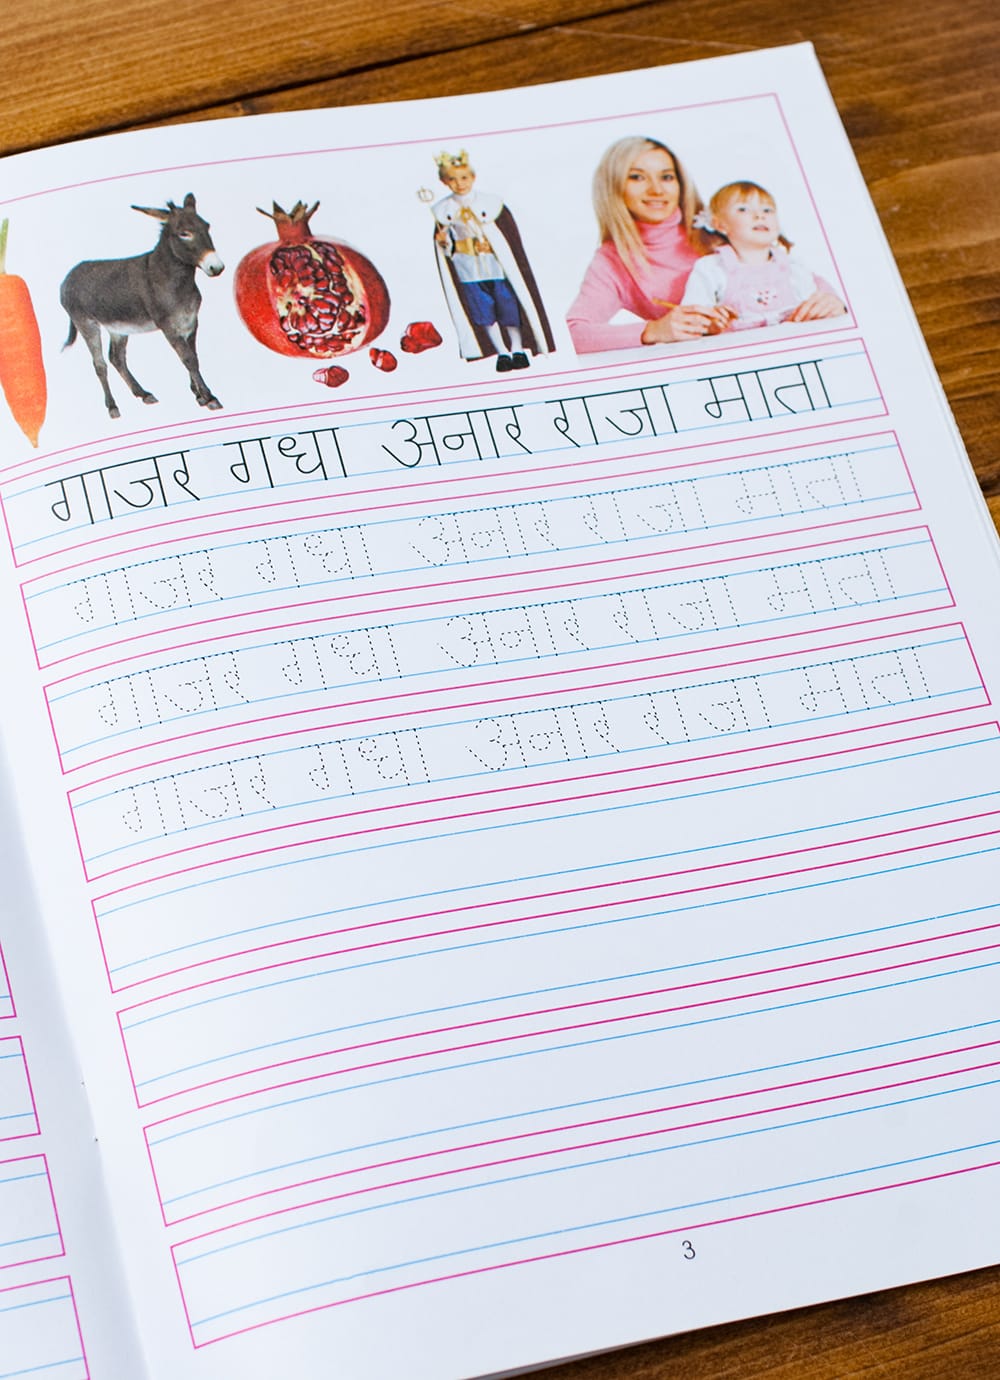 गाजर गधा अनार राजा माता
गाजर गधा अनार राजा माता
गाजर गधा अनार राजा माता
गाजर गधा अनार राजा माता
3